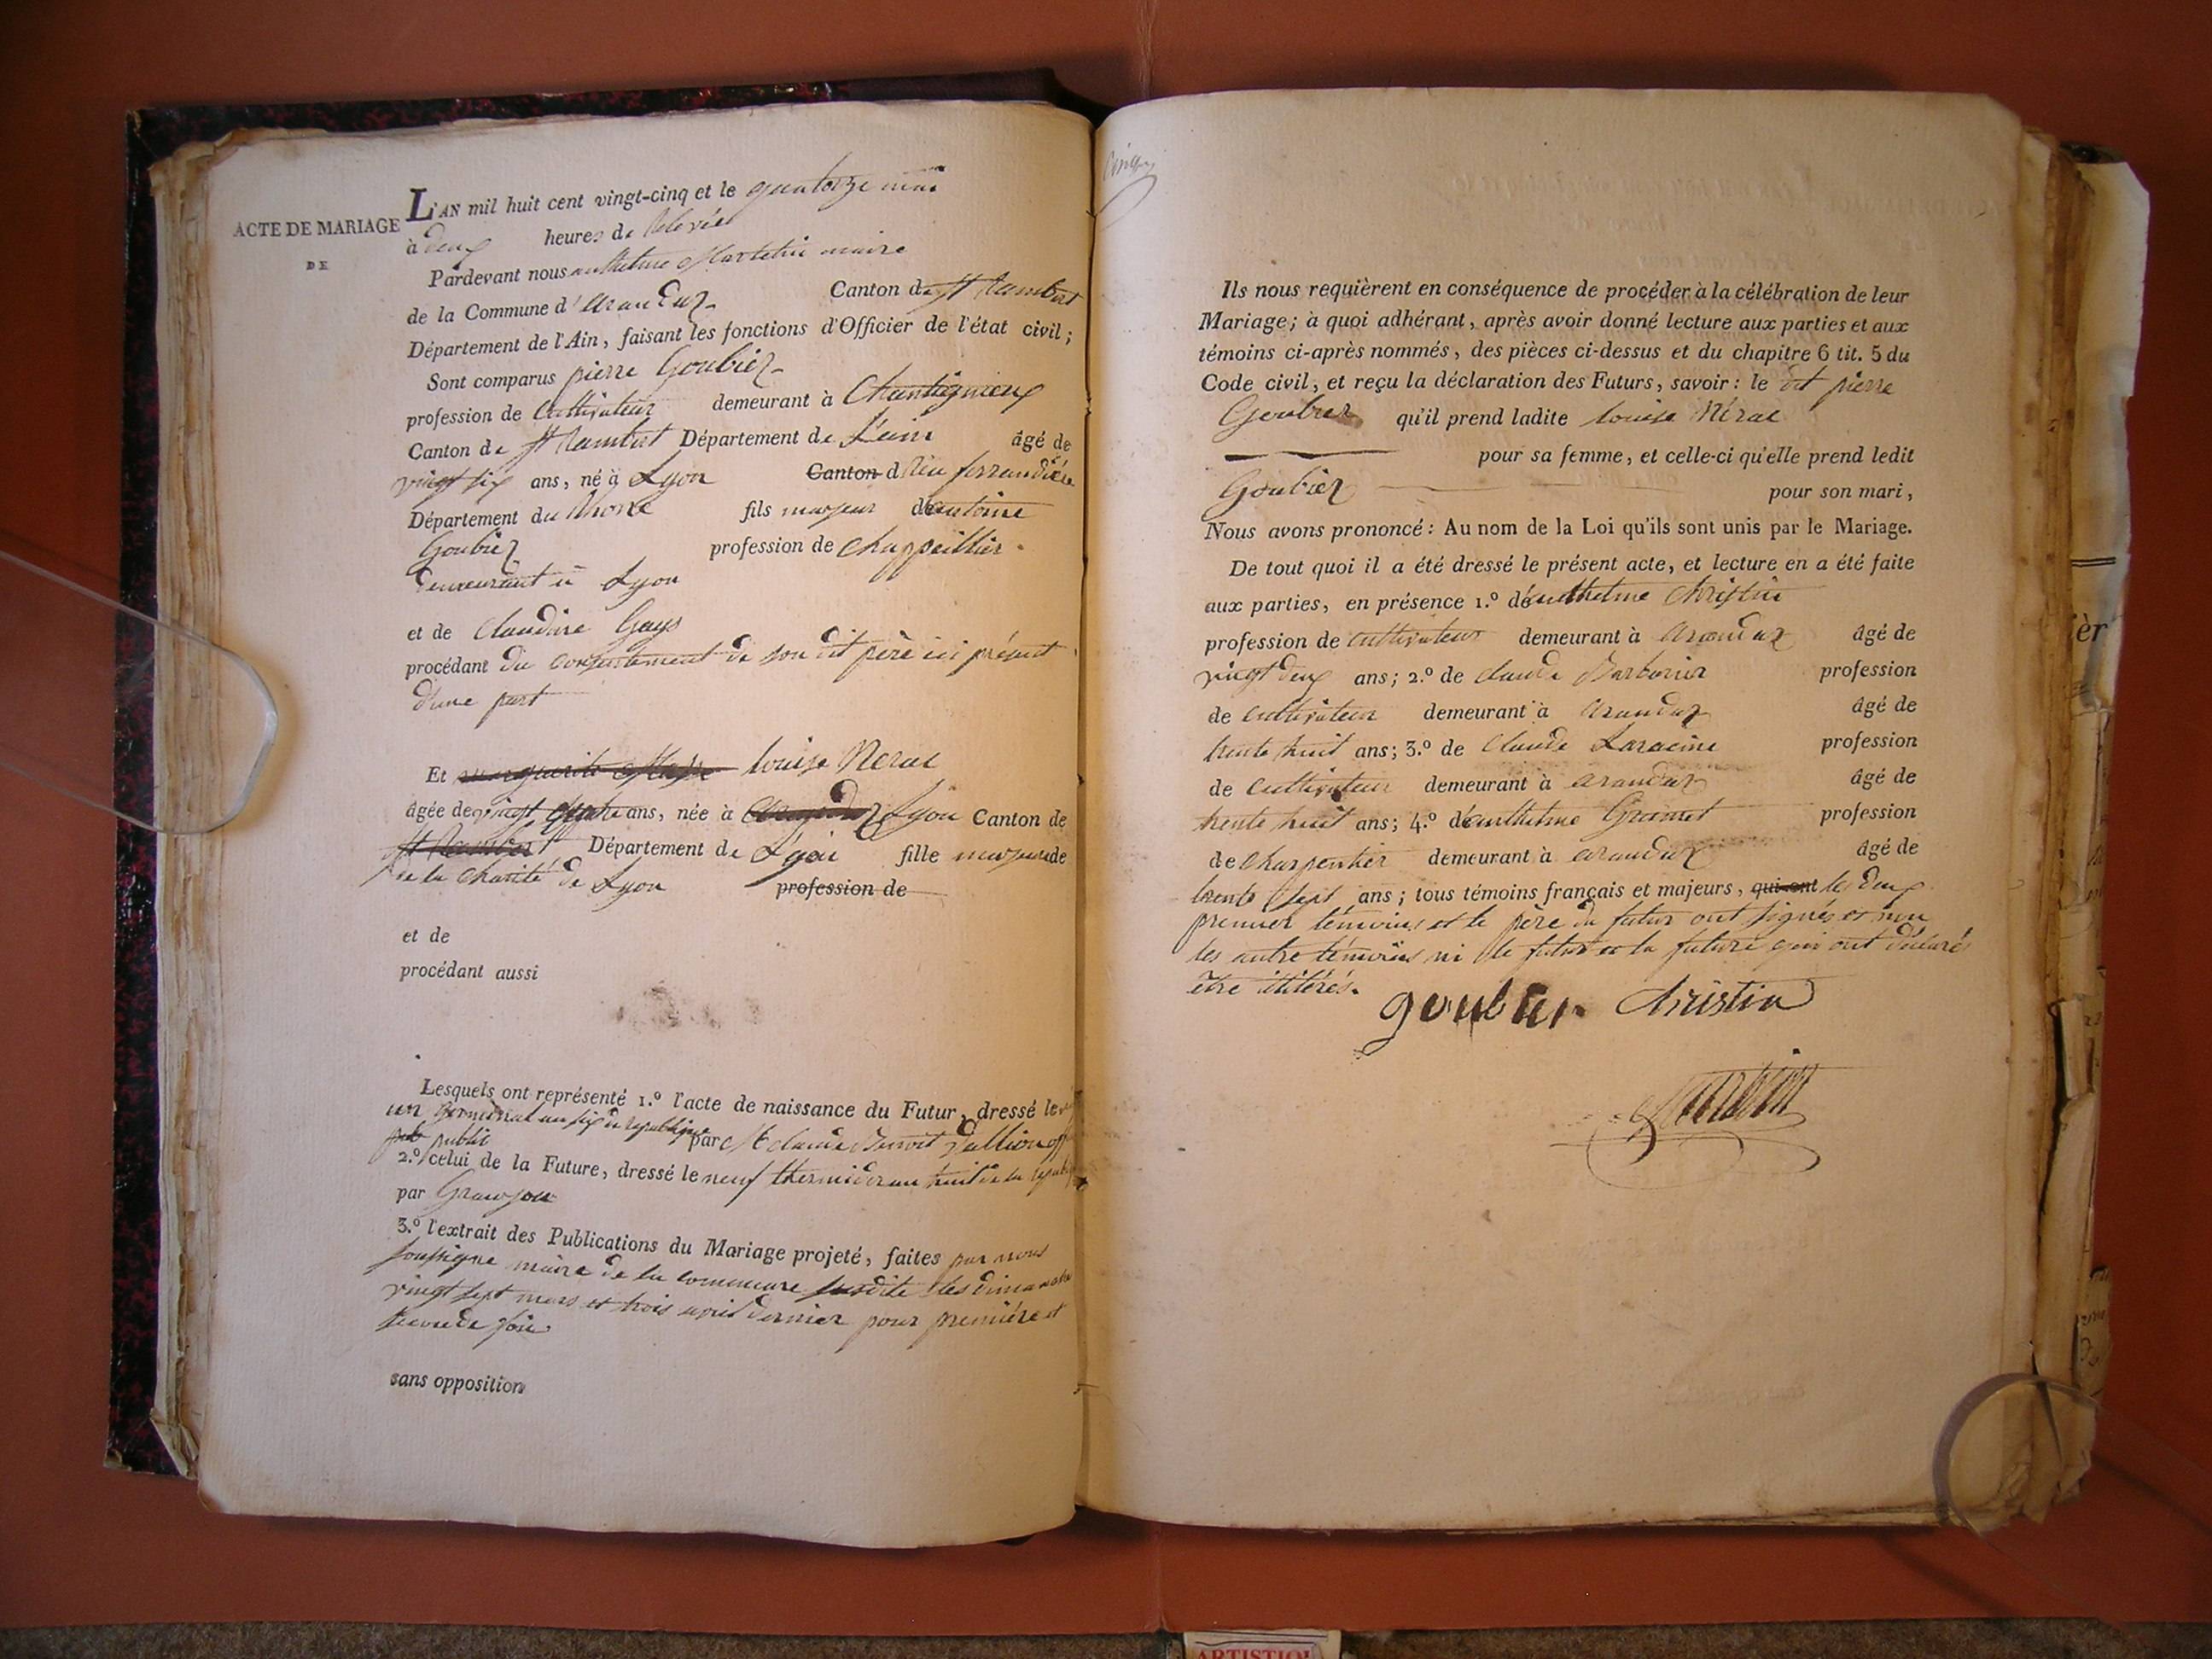 ACTE DE MARIAGE
DE
L'AN mil huit cent vingt-cinq et le quatorze mai
à deux heures de Relevée
Pardevant nous anthelme Martelin maire
de la Commune d'arandaz Canton de St Rambert
Département de l'Ain, faisant les fonctions d'Officier de l'état civil;
Sont comparus pierre Goubier
profession de Cultivateur demeurant à
Canton de St Rambert Département de L'ain âgé de
vingt six ans, né à Lyon Canton d Rue ferrandière
Département du Rhone fils majeur de antoine
Goubier profession de chappellier
demeurant à Lyon
et de Claudine Gays
procédant du consentement de son dit père ici présent
d'une part
Et louise Nerac
âgée de vingt quatre ans, née à Lyon Canton de
St Rambert Département de Lyon fille majeure de
de la charité de Lyon profession de
et de
procédant aussi
Lesquels ont représenté 1.º l'acte de naissance du Futur, dressé le vingt
un germinal an six de république par M claude Benoit off
public
2.º celui de la Future, dressé le neuf thermidor an huit de la
par
3.º l'extrait des Publications du Mariage projeté, faites par nous
soussigné maire de la commune susdite les dimanche
vingt sept mars et trois avril dernier pour première et
seconde fois
sans opposition
Ils nous requièrent en conséquence de procéder à la célébration de leur
Mariage; à quoi adhérant, après avoir donné lecture aux parties et aux
témoins ci-après nommés, des pièces ci-dessus et du chapitre 6 tit. 5 du
Code civil, et reçu la déclaration des Futurs, savoir: le dit pierre
Goubier qu'il prend ladite louise Nérac
pour sa femme, et celle-ci qu'elle prend ledit
Goubier pour son mari,
Nous avons prononcé: Au nom de la Loi qu'ils sont unis par le Mariage.
De tout quoi il a été dressé le présent acte, et lecture en a été faite
aux parties, en présence 1.º de anthelme Christin
profession de cultivateur demeurant à arandaz âgé de
vingt deux ans; 2.º de claude Barbarin profession
de cultivateur demeurant à arandaz âgé de
trente huit ans; 3.º de Claude Laracine profession
de cultivateur demeurant à arandaz âgé de
trente huit ans; 4.º de anthelme profession
de charpentier demeurant à arandaz âgé de
trente sept ans; tous témoins français et majeurs, qui ont les deux
premier témoins et le père du futur ont signés et non
les autre témoins ni le futur et la future qui ont déclarés
être illitérés.
goubier Christin